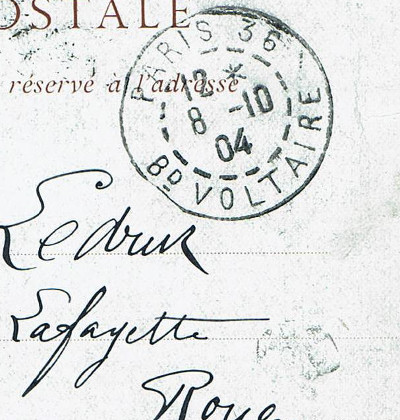 OSTALE
réservé à l'adresse
PARIS 36
12 *
8 -10
04
Bd VOLTAIRE
Ledrux
Lafayette